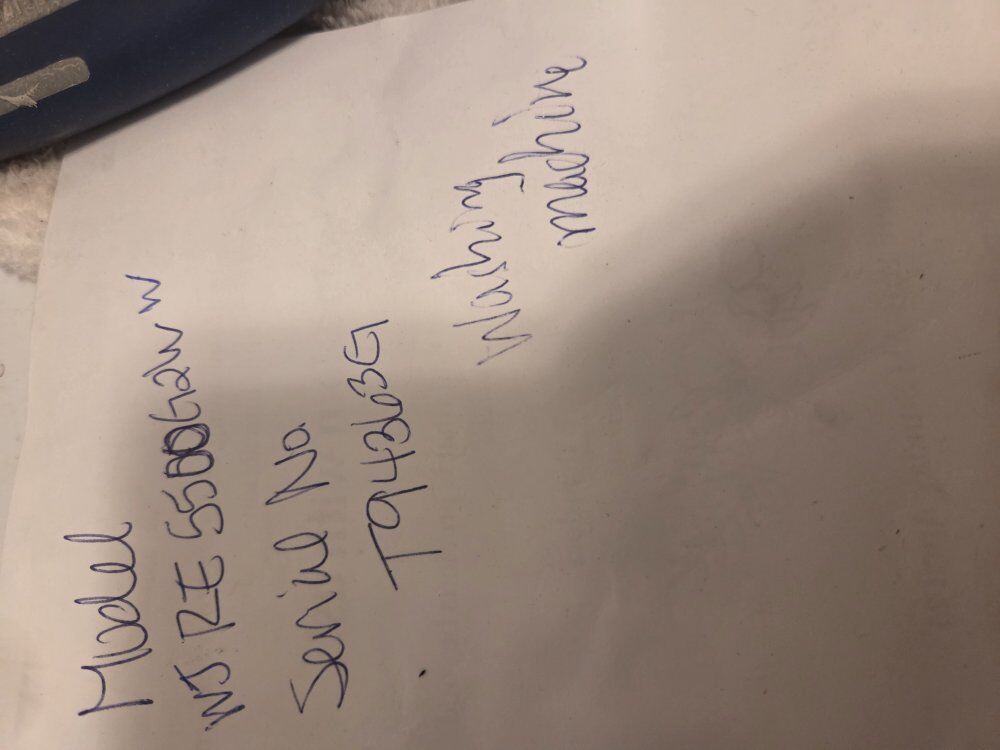 Model
WJRE5500G2WW
Serial No.
T943636G
Washing
machine